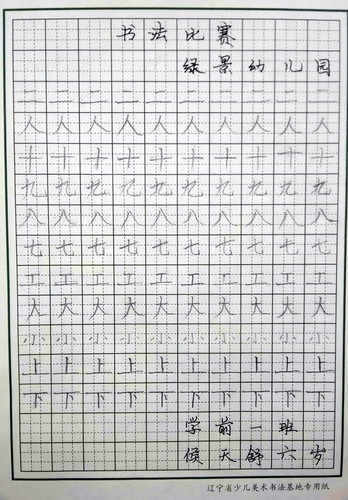 书法比赛
绿景幼儿园
二二二二二二二二二二
人人人人人人人人人人
十十十十十十十十十十
九九九九九九九九九九
八八八八八八八八八八
七七七七七七七七七七
工工工工工工工工工工
大大大大大大大大大大
小小小小小小小小小小
上上上上上上上上上上
下下下下下下下下下下
学前一班
侯天舒六岁
辽宁省少儿美术书法基地专用纸